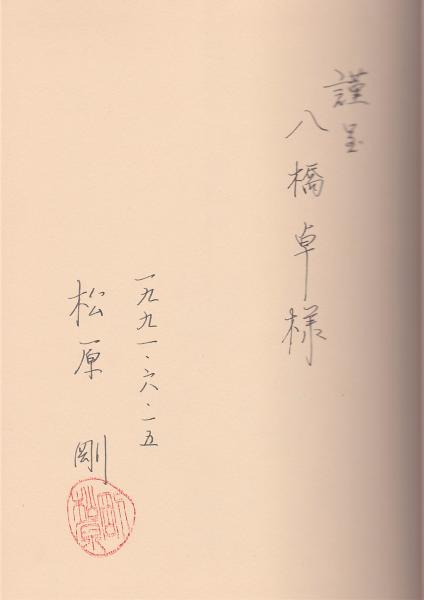 謹呈
八橋卓様
一九九一・六・一五
松原 剛
松原剛